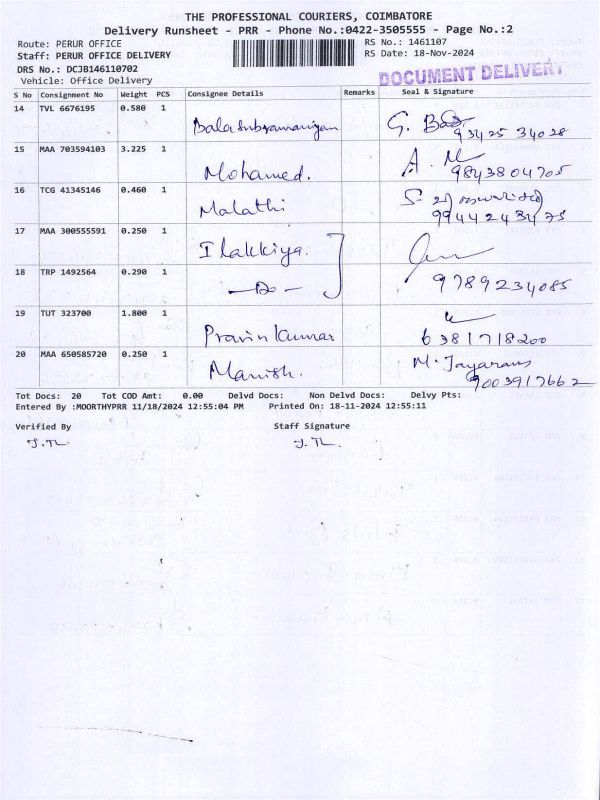 THE PROFESSIONAL COURIERS, COIMBATORE
Delivery Runsheet - PRR - Phone No.:0422-3505555 - Page No.:2
Route: PERUR OFFICE RS No.: 1461107
Staff: PERUR OFFICE DELIVERY RS Date: 18-Nov-2024
DRS No.: DCJB146110702
Vehicle: Office Delivery
DOCUMENT DELIVERY
S No Consignment No Weight PCS Consignee Details Remarks Seal & Signature
14 TVL 6676195 0.580 1 Balasubramaniyan G. 93425 34028
15 MAA 703594103 3.225 1 Mohamed. A. M 9843804705
16 TCG 41345146 0.460 1 Malathi 9944243475
17 MAA 300555591 0.250 1 Ilakkiya.
18 TRP 1492564 0.290 1 —Do— 9789234085
19 TUT 323700 1.800 1 Pravin Kumar 6381718200
20 MAA 650585720 0.250 1 Manish. M. Jayaram 9003917662
Tot Docs: 20 Tot COD Amt: 0.00 Delvd Docs: Non Delvd Docs: Delvy Pts:
Entered By :MOORTHYPRR 11/18/2024 12:55:04 PM Printed On: 18-11-2024 12:55:11
Verified By Staff Signature